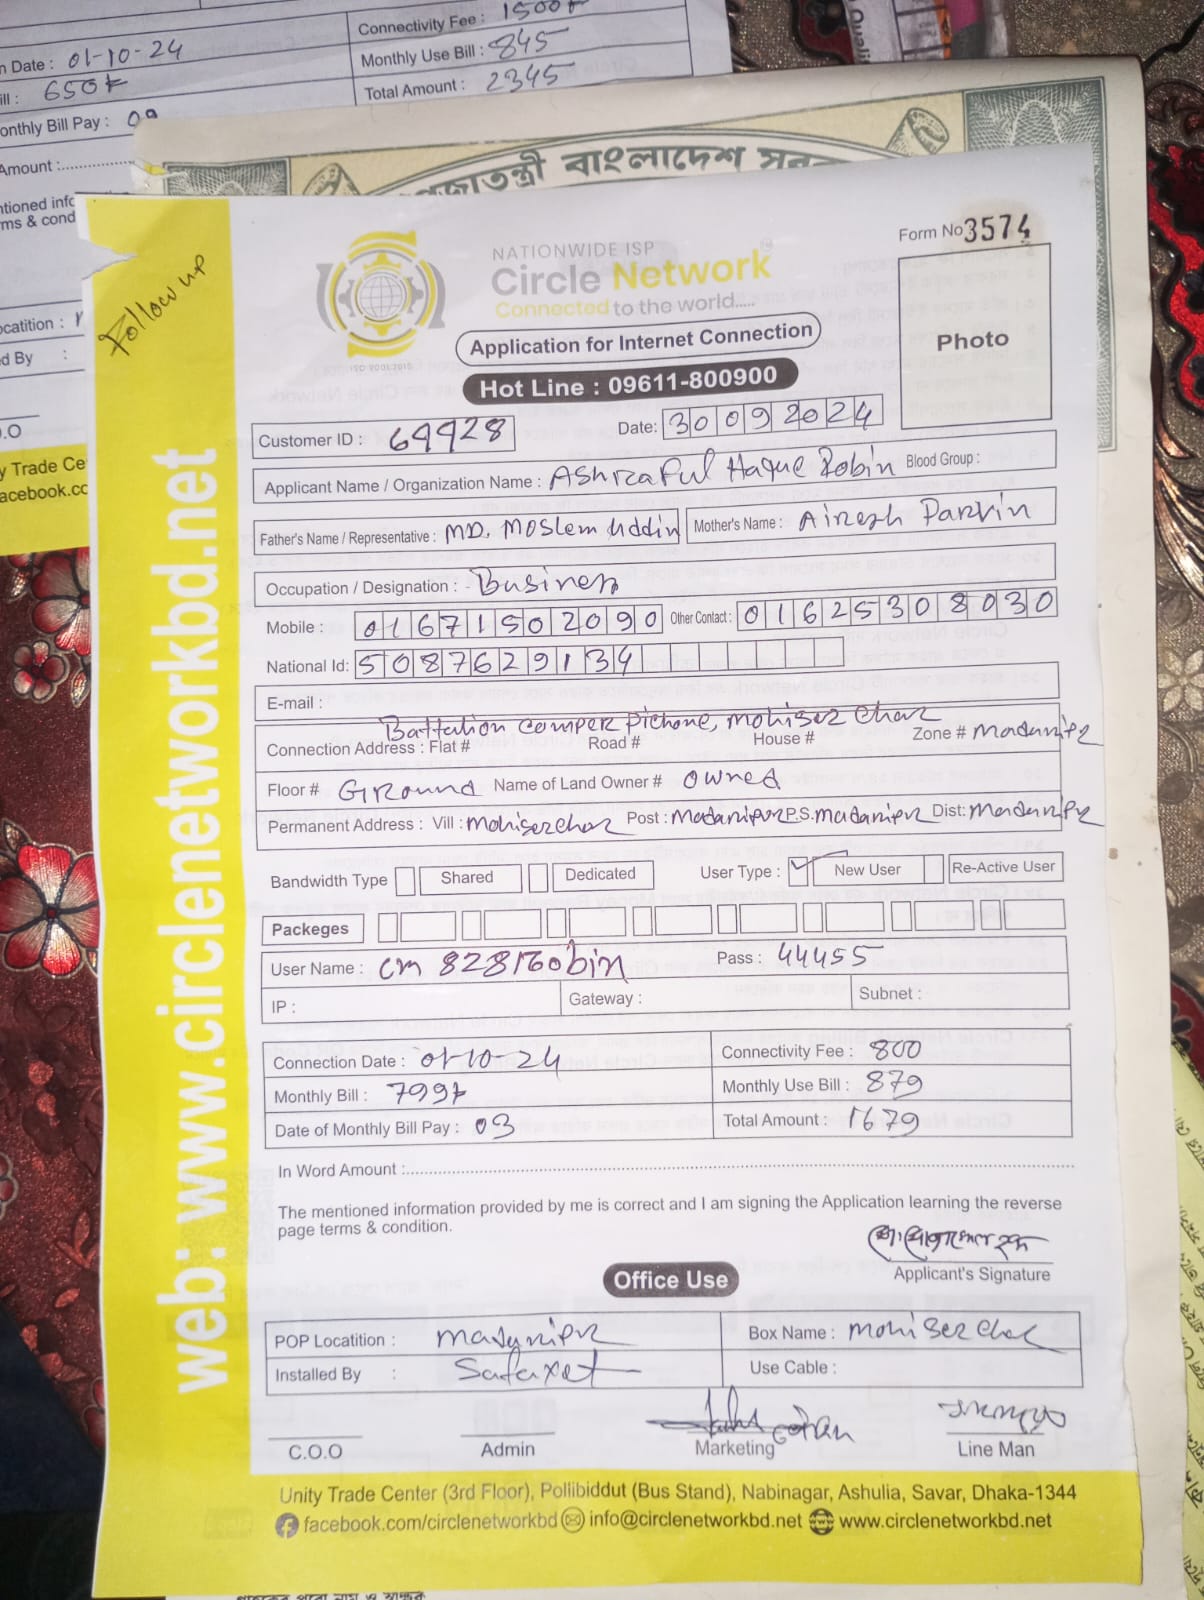 Connectivity Fee : 1500৳
n Date : 01-10-24
Monthly Use Bill : 845
ill : 650৳
Total Amount : 2345
onthly Bill Pay : 09
Amount :
ntioned info
ms & cond
ocatition :
ed By :
.O
y Trade Ce
acebook.cc
বাংলাদেশ
Follow up
web: www.circlenetworkbd.net
Form No 3574
NATIONWIDE ISP
Circle Network
Connected to the world.....
ISO 9001:2015
Application for Internet Connection
Photo
Hot Line : 09611-800900
Customer ID : 69928
Date: 30092024
Applicant Name / Organization Name : Ashraful Haque Robin Blood Group :
Father's Name / Representative : MD. Moslem Uddin Mother's Name : Airesh Parvin
Occupation / Designation : Business
Mobile : 01671502090 Other Contact : 01625308030
National Id: 5087629134
E-mail :
Battalion Pichone, Mohiser Char
Connection Address : Flat # Road # House # Zone # Madaripur
Floor # Ground Name of Land Owner # owned
Permanent Address : Vill : Mohiserchar Post : Madaripur P.S. Madaripur Dist: Madaripur
Bandwidth Type Shared Dedicated User Type : New User Re-Active User
Packeges
User Name : cm 828 Robin Pass : 44455
IP : Gateway : Subnet :
Connection Date : 01-10-24 Connectivity Fee : 800
Monthly Bill : 799৳ Monthly Use Bill : 879
Date of Monthly Bill Pay : 03 Total Amount : 1679
In Word Amount :
The mentioned information provided by me is correct and I am signing the Application learning the reverse
page terms & condition.
Applicant's Signature
Office Use
POP Locatition : Madaripur Box Name : Mohiser Char
Installed By : Use Cable :
C.O.O Admin Marketing Line Man
Unity Trade Center (3rd Floor), Pollibiddut (Bus Stand), Nabinagar, Ashulia, Savar, Dhaka-1344
facebook.com/circlenetworkbd info@circlenetworkbd.net www.circlenetworkbd.net